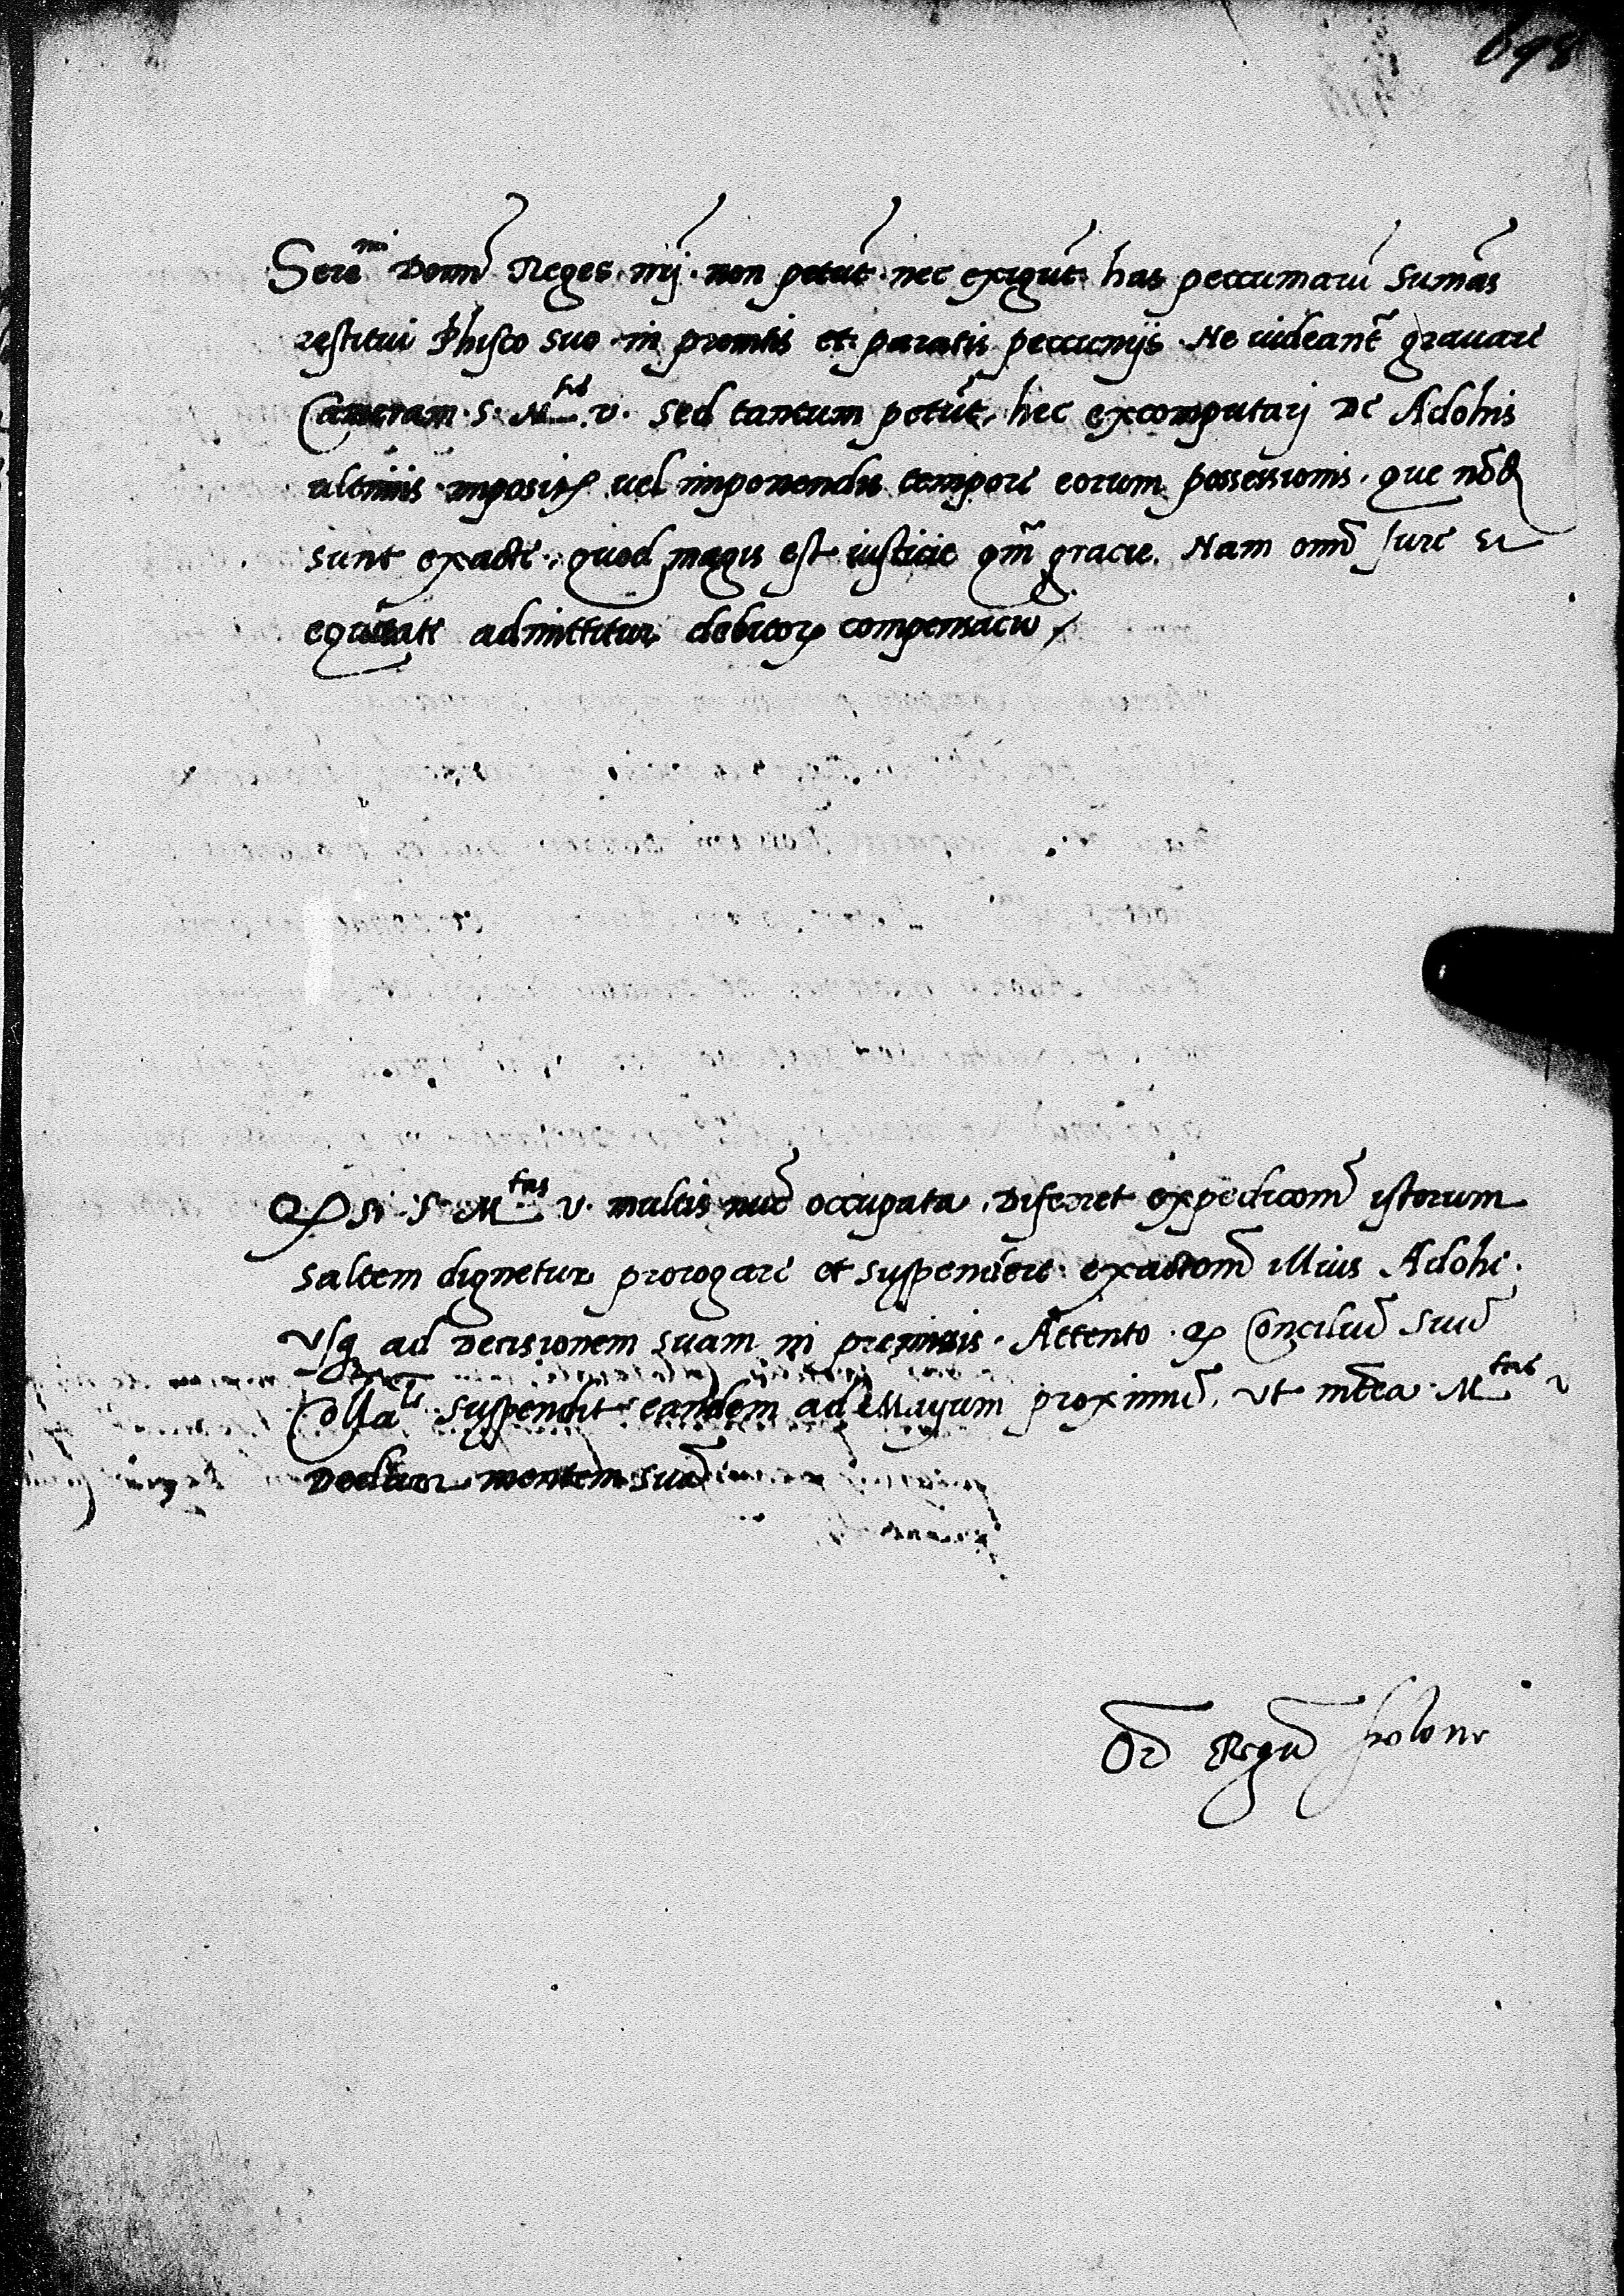 698
Sere^mi Domi͂ Reges mij non petu͂t nec exigu͂t has peccuniaru͂ sumas
restitui Phisco suo in promtis et paratis peccunijs Ne uideant͂ grauare
Cameram S. M^tis v. sed tantum petu͂t, hec excomputarj de Adohis
ultimis impositꝭ uel imponendis tempore eorum possessionis, que no͂d
sunt exacte, quod magis est iusticie qm͂ gracie. Nam omi͂ Jure et
equitate admittitur debitorꝝ compensacio
Qꝫ si S. M^tas v. multis nuc͂ occupata, diferret expedicom͂ istorum
saltem dignetur prorogare et suspendere exactom͂ illius Adohe.
Vsqꝫ ad decisionem suam in premissis. Attento qꝫ Conciliu͂ suu͂
Colla^le suspendit eandem ad Mayum proximu͂, ut int͂ea M^tas v
declaret mentem sua͂
Or͂ Regu͂ Polone